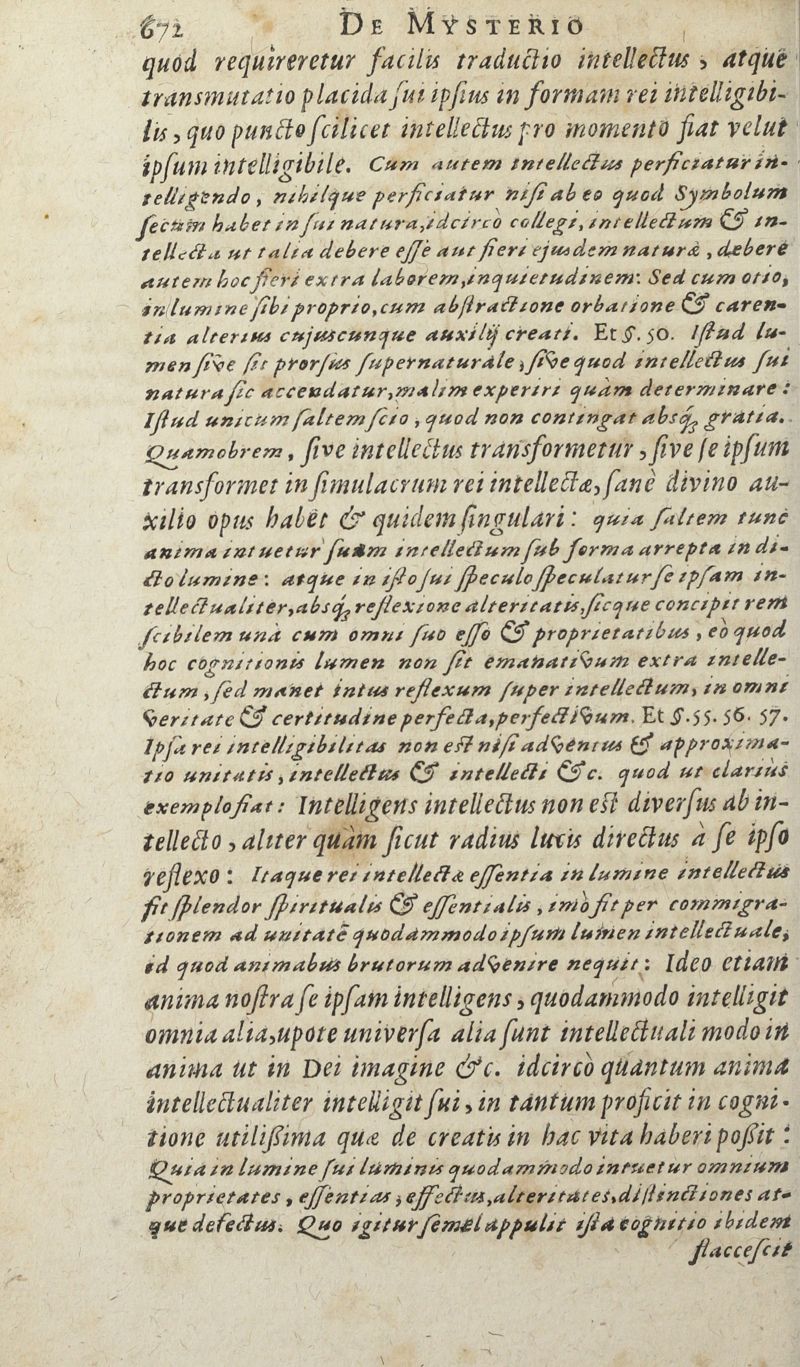 672 DE MYSTERIO
quod requireretur facilis traductio intellectus, atque
transmutatio placida sui ipsius in formam rei intelligibi-
lis, quo puncto scilicet intellectus pro momento fiat velut
ipsum intelligibile. Cum autem intellectus perficiatur in-
telligendo, nihilque perficiatur nisi ab eo quod Symbolum
secum habet in sui natura, idcirco collegi, intellectum & in-
tellecta ut talia debere esse aut fieri ejusdem naturæ, debere
autem hoc fieri extra laborem, inquietudinem: Sed cum otio,
in lumine sibi proprio, cum abstractione orbatione & caren-
tia alterius cujuscunque auxilij creati. Et §. 50. Istud lu-
men sive sit prorsus supernaturale, sive quod intellectus sui
natura sic accendatur, malim experiri quàm determinare:
Istud unicum saltem scio, quod non contingat absq; gratia.
Quamobrem, sive intellectus transformetur, sive se ipsum
transformet in simulacrum rei intellectæ, sanè divino au-
xilio opus habet & quidem singulari: quia saltem tunc
anima intuetur suum intellectum sub forma arrepta in di-
cto lumine: atque in isto sui speculo speculatur se ipsam in-
tellectualiter, absq; reflexione alteritatis, sicque concipit rem
scibilem unà cum omni suo esse & proprietatibus, eò quod
hoc cognitionis lumen non sit emanativum extra intelle-
ctum, sed manet intus reflexum super intellectum, in omni
veritate & certitudine perfecta, perfectivum. Et §. 55. 56. 57.
Ipsa rei intelligibilitas non est nisi adventus & approxima-
tio unitatis, intellectus & intellecti &c. quod ut clariùs
exemplo fiat: Intelligens intellectus non est diversus ab in-
tellecto, aliter quàm sicut radius lucis directus à se ipso
reflexo: Itaque rei intellectæ essentia in lumine intellectus
fit splendor spiritualis & essentialis, imò fit per commigra-
tionem ad unitatē quodammodo ipsum lumen intellectuale,
id quod animabus brutorum advenire nequit: Ideo etiam
anima nostra se ipsam intelligens, quodammodo intelligit
omnia alia, upote universa alia sunt intellectuali modo in
anima ut in Dei imagine &c. idcircò quantum anima
intellectualiter intelligit sui, in tantum proficit in cogni-
tione utilissima quæ de creatis in hac vita haberi possit:
Quia in lumine sui luminis quodammodo intuetur omnium
proprietates, essentias, effectus, alteritates, distinctiones at-
que defectus. Quo igitur semel appulit ista cognitio ibidem
flaccescit